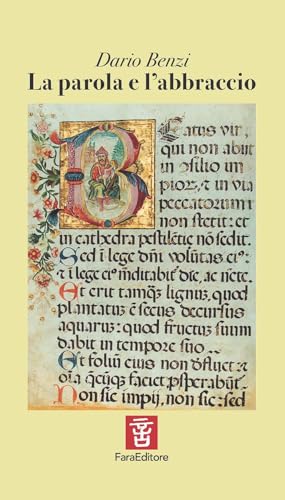 Dario Benzi
La parola e l'abbraccio
Beatus vir,
qui non abiit
in
et in via
peccatorum
non stetit: et
in cathedra pestilentie nō sedit.
Sed ī lege dn̄i volūtas ei
et ī lege ei meditabit die, ac n
Et erit tamq̄ lignum, quod
plantatum ē secus decursus
aquarum: quod fructum suum
dabit in tempore suo
Et foliū eius non defluet et
faciet
Non sic impij, non sic: sed
FaraEditore